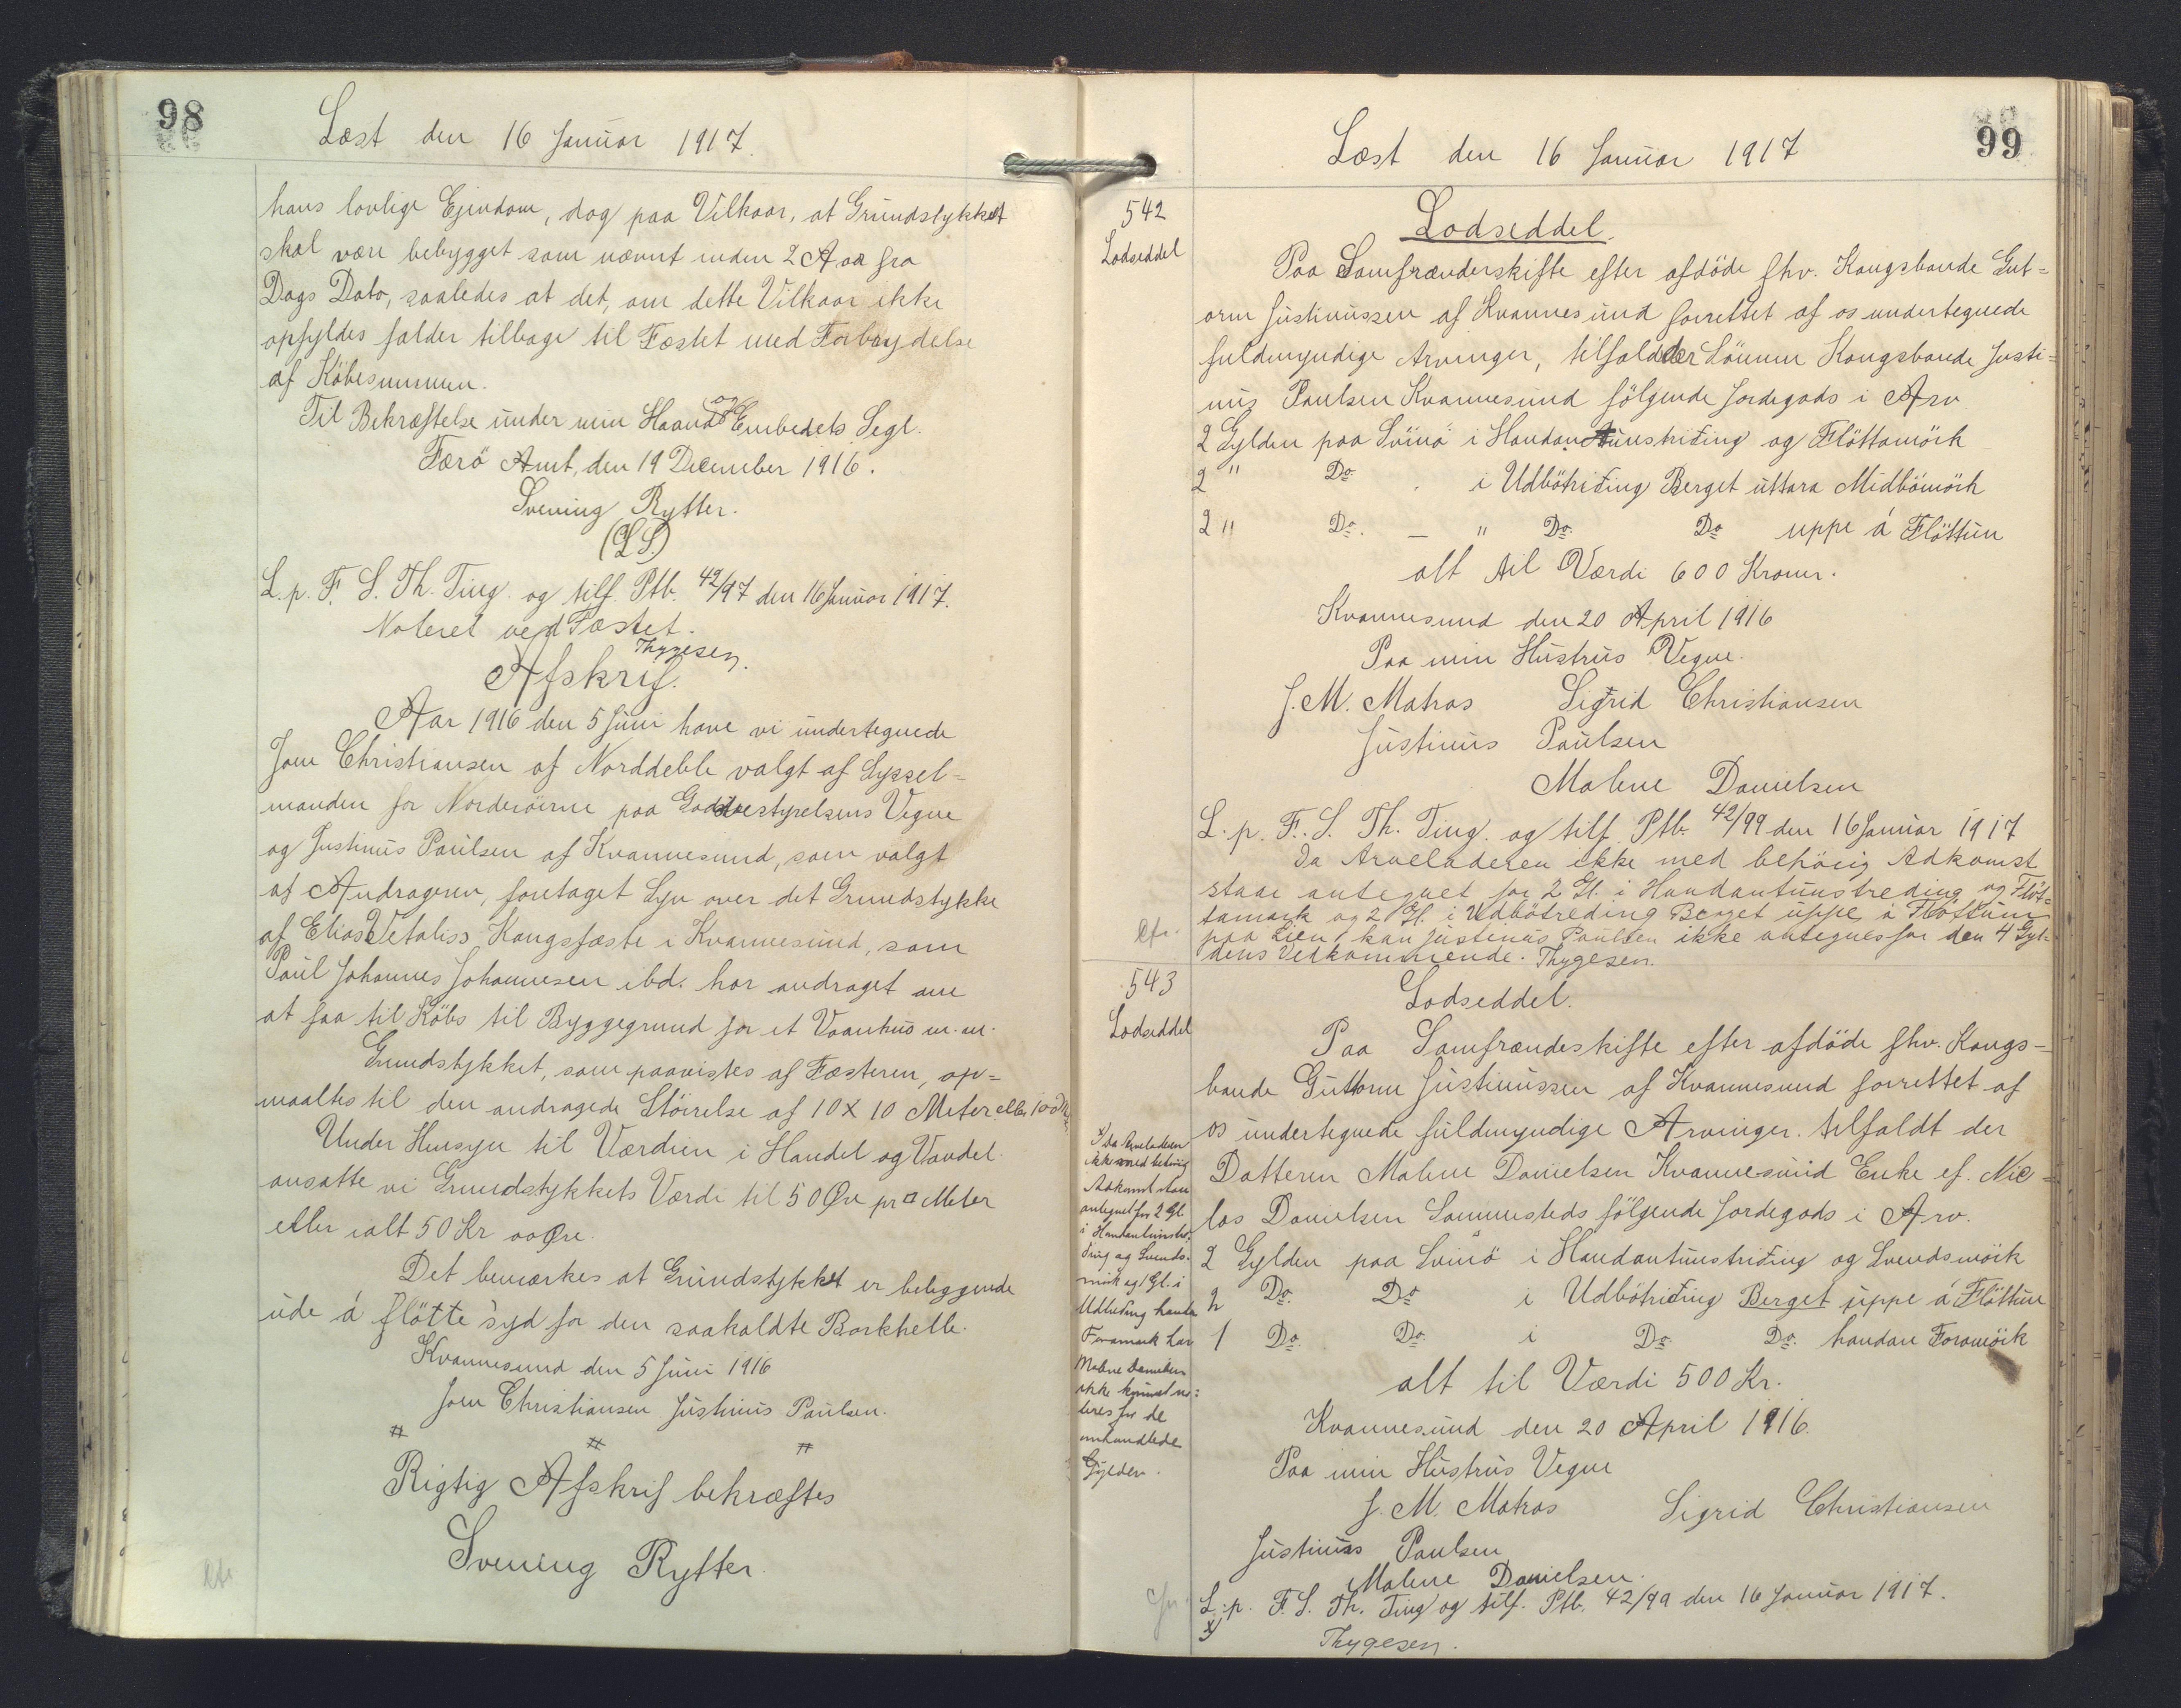 98
Læst den 16 Januar 1917.
hans lovlige Ejendom, dog paa Vilkaar, at Grundstykket
skal være bebygget som nævnt inden 2 Aar fra
Dags Dato, saaledes at det, om dette Vilkaar ikke
opfyldes falder tilbage til Fæstet med Forbrydelse
af Köbesummen.
Til Bekræftelse under min Haand og Embedets Segl.
Færö Amt, den 19 December 1916.
Svening Rytter.
(L.S.)
L. p. F. S. Th. Ting. og tilf. Ptb. 42/97 den 16 Januar 1917.
Noteret ved Fæstet.
Thygesen.
Afskrif.
Aar 1916 den 5 Juni have vi undertegnede
Joen Christiansen af Norddeble valgt af Syssel=
manden for Norderöerne paa Godsbestyrelsens Vegne
og Justinus Paulsen af Kvannesund, som valgt
af Andrageren, foretaget Syn over det Grundstykke
af Elias Vetaliss Kongsfæste i Kvannesund, som
Poul Johannes Johannesen ibd. har andraget om
at faa til Köbs til Byggegrund for et Vaanhus m. m.
Grundstykket, som paavistes af Fæsteren, op=
maaltes til den andragede Störrelse af 10 X 10 Meter eller 100
Under Hensyn til Værdien i Handel og Vandel
ansatte vi Grundstykkets Værdi til 50 Øre pr □ Meter
eller ialt 50 Kr oo Øre.
Det bemærkes at Grundstykket er beliggende
ude á flötte syd for den saakaldte Borkhelle.
Kvannesund den 5 Juni 1916
Joen Christiansen Justinus Paulsen.
# # #
Rigtig Afskrif bekræftes
Svening Rytter.
99
Læst den 16 Januar 1917
542
Lodseddel
Lodseddel.
Paa Samfrænderskifte efter afdöde fhv. Kongsbonde Gut=
orm Justinussen af Kvannesund forrettet af os undertegnede
fuldmyndige Arvinger, tilfaldder Sönnen Kongsbonde Justi=
nus Paulsen Kvannesund fölgende Jordegods i Arv
2 Gylden paa Svinö i Handantúnstriđing og Flöttamörk
2 " Do. i Udbötriđing Berget úttara Midbömörk
2 " Do. — " Do. Do uppe á Flöttun
alt til Værdi 600 Kroner.
Kvannesund den 20 April 1916
Paa min Hustrus Vegne.
J. M. Matras Sigrid Christiansen
Justinus Paulsen
Malene Danielsen
L. p. F. S. Th. Ting. og tilf. Ptb. 42/99 den 16 Januar 1917
Da Arveladeren ikke med behörig Adkomst
staar antegnet for 2 Gl. i Handantúnstreding og Flöt=
tamark og 2 Gl. i Udbötreding Berget uppe á Flöttum
paa Eien, kan Justinus Paulsen ikke antegnes for den 4 Gyl=
dens Vedkommende. Thygesen.
543
Lodseddel
Lodseddel.
Paa Samfrændeskifte efter afdöde fhv. Kongs=
bonde Guttorm Justinussen af Kvannesund forrettet af
os undertegnede fuldmyndige Arvinger. tilfaldt der
Datteren Malene Danielsen Kvannesund Enke ef. Nic=
las Danielsen Sammesteds fölgende Jordegods i Arv.
2 Gylden paa Svinö i Handantúnstriđing og Svendsmörk
2 Do. Do i Udbötriđing Berget uppe á Flöttun
1 Do. Do. i Do. Do. handan Foramörk
alt til Værdi 500 Kr.
Kvannesund den 20 April 1916.
Paa min Hustrus Vegne
J. M. Matras Sigrid Christiansen
Justinus Paulsen
Malene Danielsen.
L. p. F. S. Th. Ting og tilf. Ptb. 42/99 den 16 Januar 1917.
x) Thygesen.
x) Da Arveladeren
ikke med behörig
Adkomst staar
antegnet for 2 Gl.
i Handantúnstre=
ding og Svends=
mörk og 1 Gl. i
Udbteding handa
Foramark har
Malene Danielsen
ikke kunnet no=
teres for de
omhandlede
Gylden.